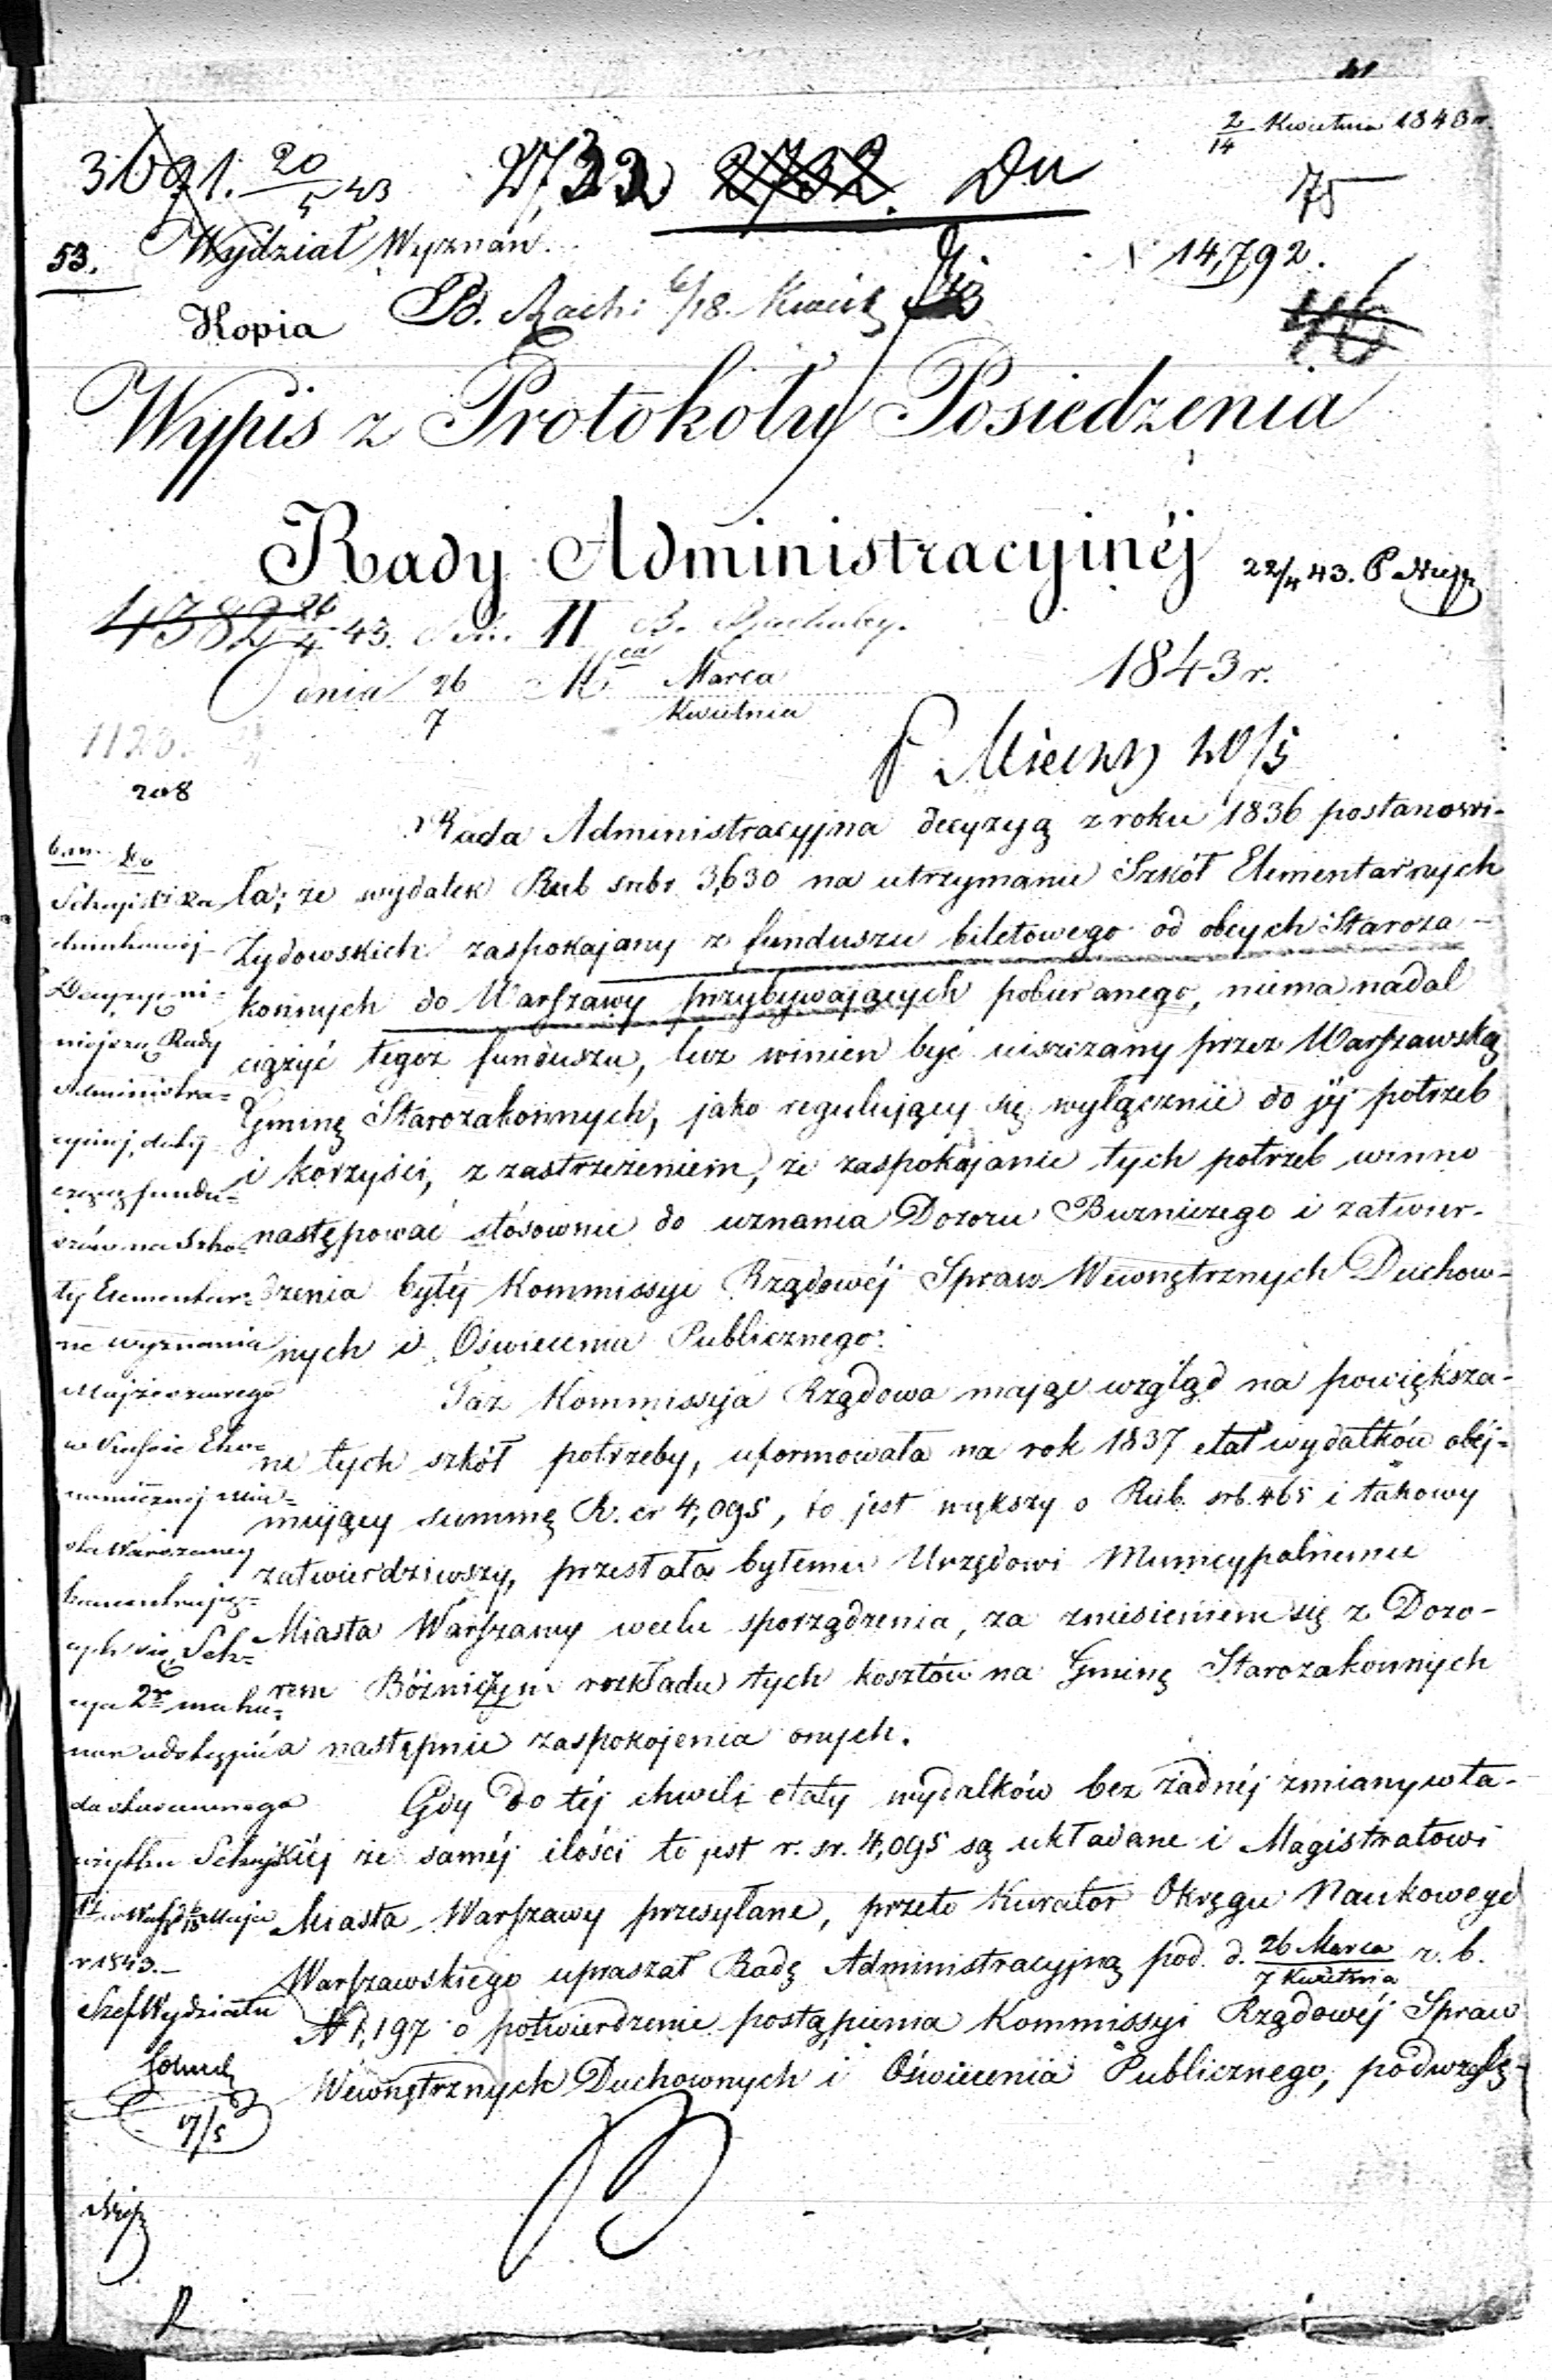 2/14 Kwietnia 1843 r.
3691. 20/5 43 2732 2732. Du
75
53. Wydział Wyznań.
14,792.
Kopia
46
Wypis z Protokółu Posiedzenia
Rady Administracyinéj
22/4 43.
4382 26/4 43. II
dnia 26/7 Marca/Kwietnia 1843 r.
1123.
10/5
208
Rada Administracyjna decyzyą z roku 1836 postanowi-
ła; że wydatek Rub srebr 3,630 na utrzymanie Szkół Elementarnych
Żydowskich zaspokajany z funduszu biletowego od obcych Staroza-
konnych do Warszawy przybywających pobieranego, niema nadal
ciążyć tegoż funduszu, lecz winien być uiszczany przez Warszawską
Gminę Starozakonnych, jako regulujący się wyłącznie do jéj potrzeb
i korzyści, z zastrzeżeniem, że zaspokajanie tych potrzeb winno
następować stósownie do uznania Dozoru Bużniczego i zatwier-
dzenia byłéj Kommissyi Rządowéj Spraw Wewnętrznych Duchow-
nych i Oświecenia Publicznego.
Taż Kommissyja Rządowa mając wzgląd na powiększa-
ne tych szkół potrzeby, uformowała na rok 1837 etat wydatków obéj-
mujący summę R. sr 4,095, to jest większy o Rub. srb. 465 i takowy
zatwierdziwszy, przesłała byłemu Urzędowi Municypalnemu
Miasta Warszawy w celu sporządzenia, za zniesieniem się z Dozo-
rem Bóżniczym rozkładu tych kosztów na Gminę Starozakonnych
a następnie zaspokojenia onych.
Gdy do téj chwili etaty wydatków bez żadnéj zmiany w ta-
kiéj że saméj ilości to jest r. sr. 4,095 są układane i Magistratowi
Miasta Warszawy przesyłane, przeto Kurator Okręgu Naukowego
Warszawskiego upraszał Radę Administracyjną pod d. 26 Marca/7 Kwietnia r. b.
N 1,197 o potwierdzenie postąpienia Kommissyi Rządowéj Spraw
Wewnętrznych Duchownych i Oświecenia Publicznego, pod wzglę-
Do
Sekcyi
Decyzyę ni-
niejszą Rady
Administra-
cyjnej, doty-
czącą fundu-
szów na Szko-
ły Elementar-
ne wyznania
Mojżeszowego
w
Miasta Warszawy
koncentrują-
cych się, Sek-
cya 2
do stosownego
użytku Sekcyi
Maja
r 1843.
Szef Wydziału
17/5